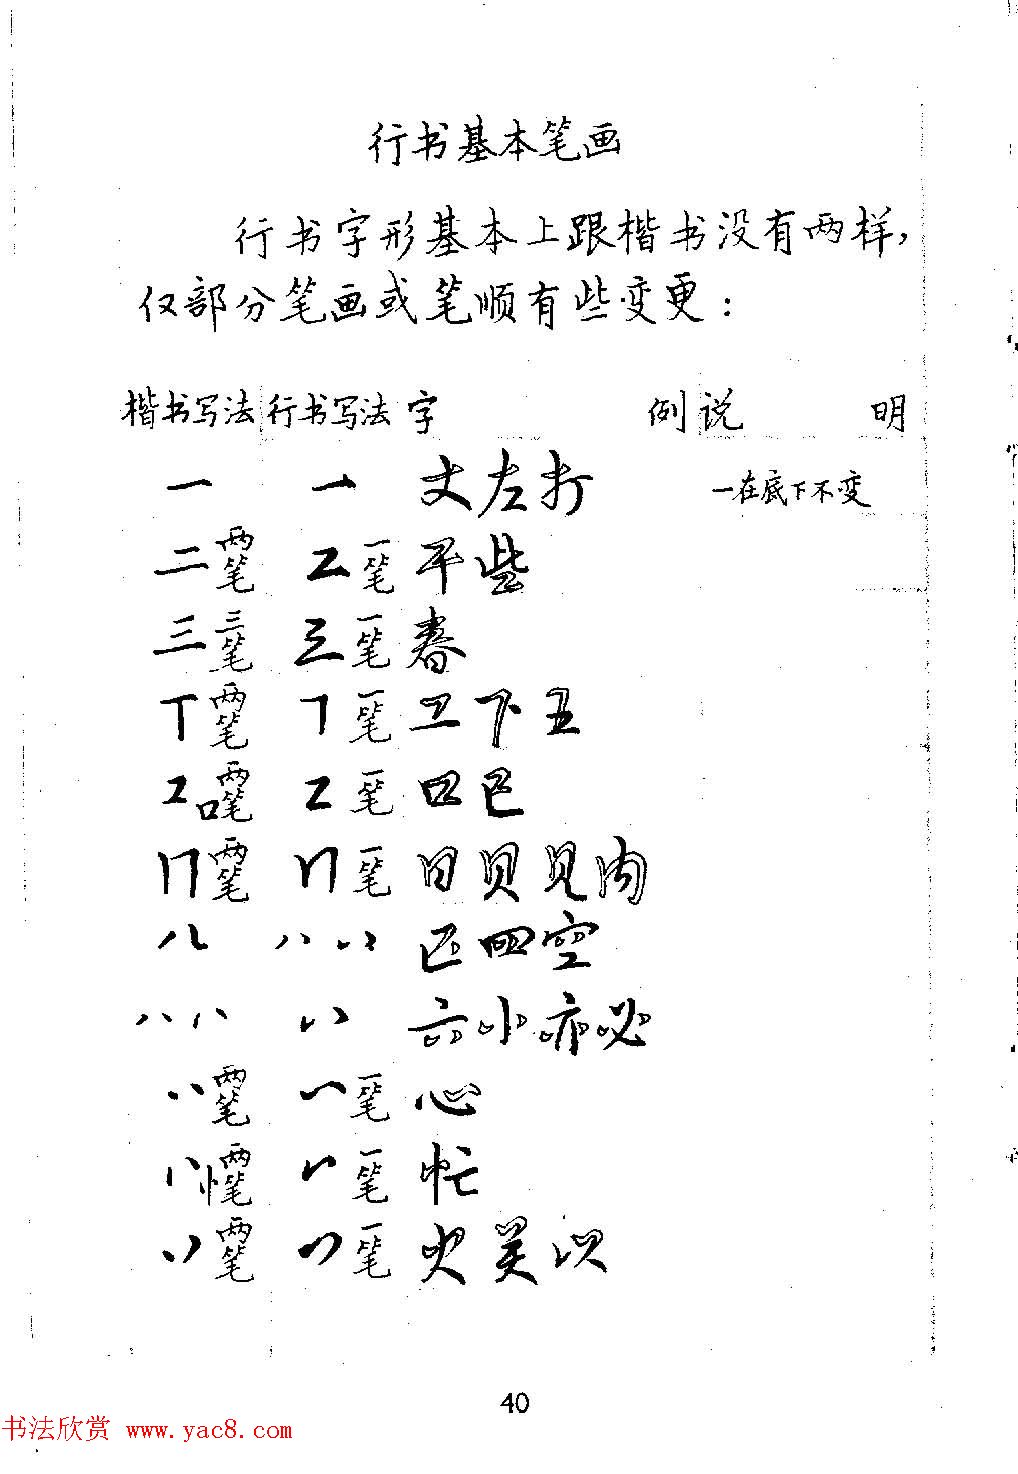 行书基本笔画
行书字形基本上跟楷书没有两样，
仅部分笔画或笔顺有些变更：
楷书写法 行书写法 字 例 说 明
一 一 丈左打 一在底下不变
二两笔 一笔 平些
三三笔 一笔 春
丁两笔 一笔 工下五
口两笔 一笔 口巴
两笔 一笔 日贝见肉
匹四空
六小亦必
两笔 一笔 心
忄两笔 一笔 忙
两笔 一笔 火关以
40
书法欣赏 www.yac8.com